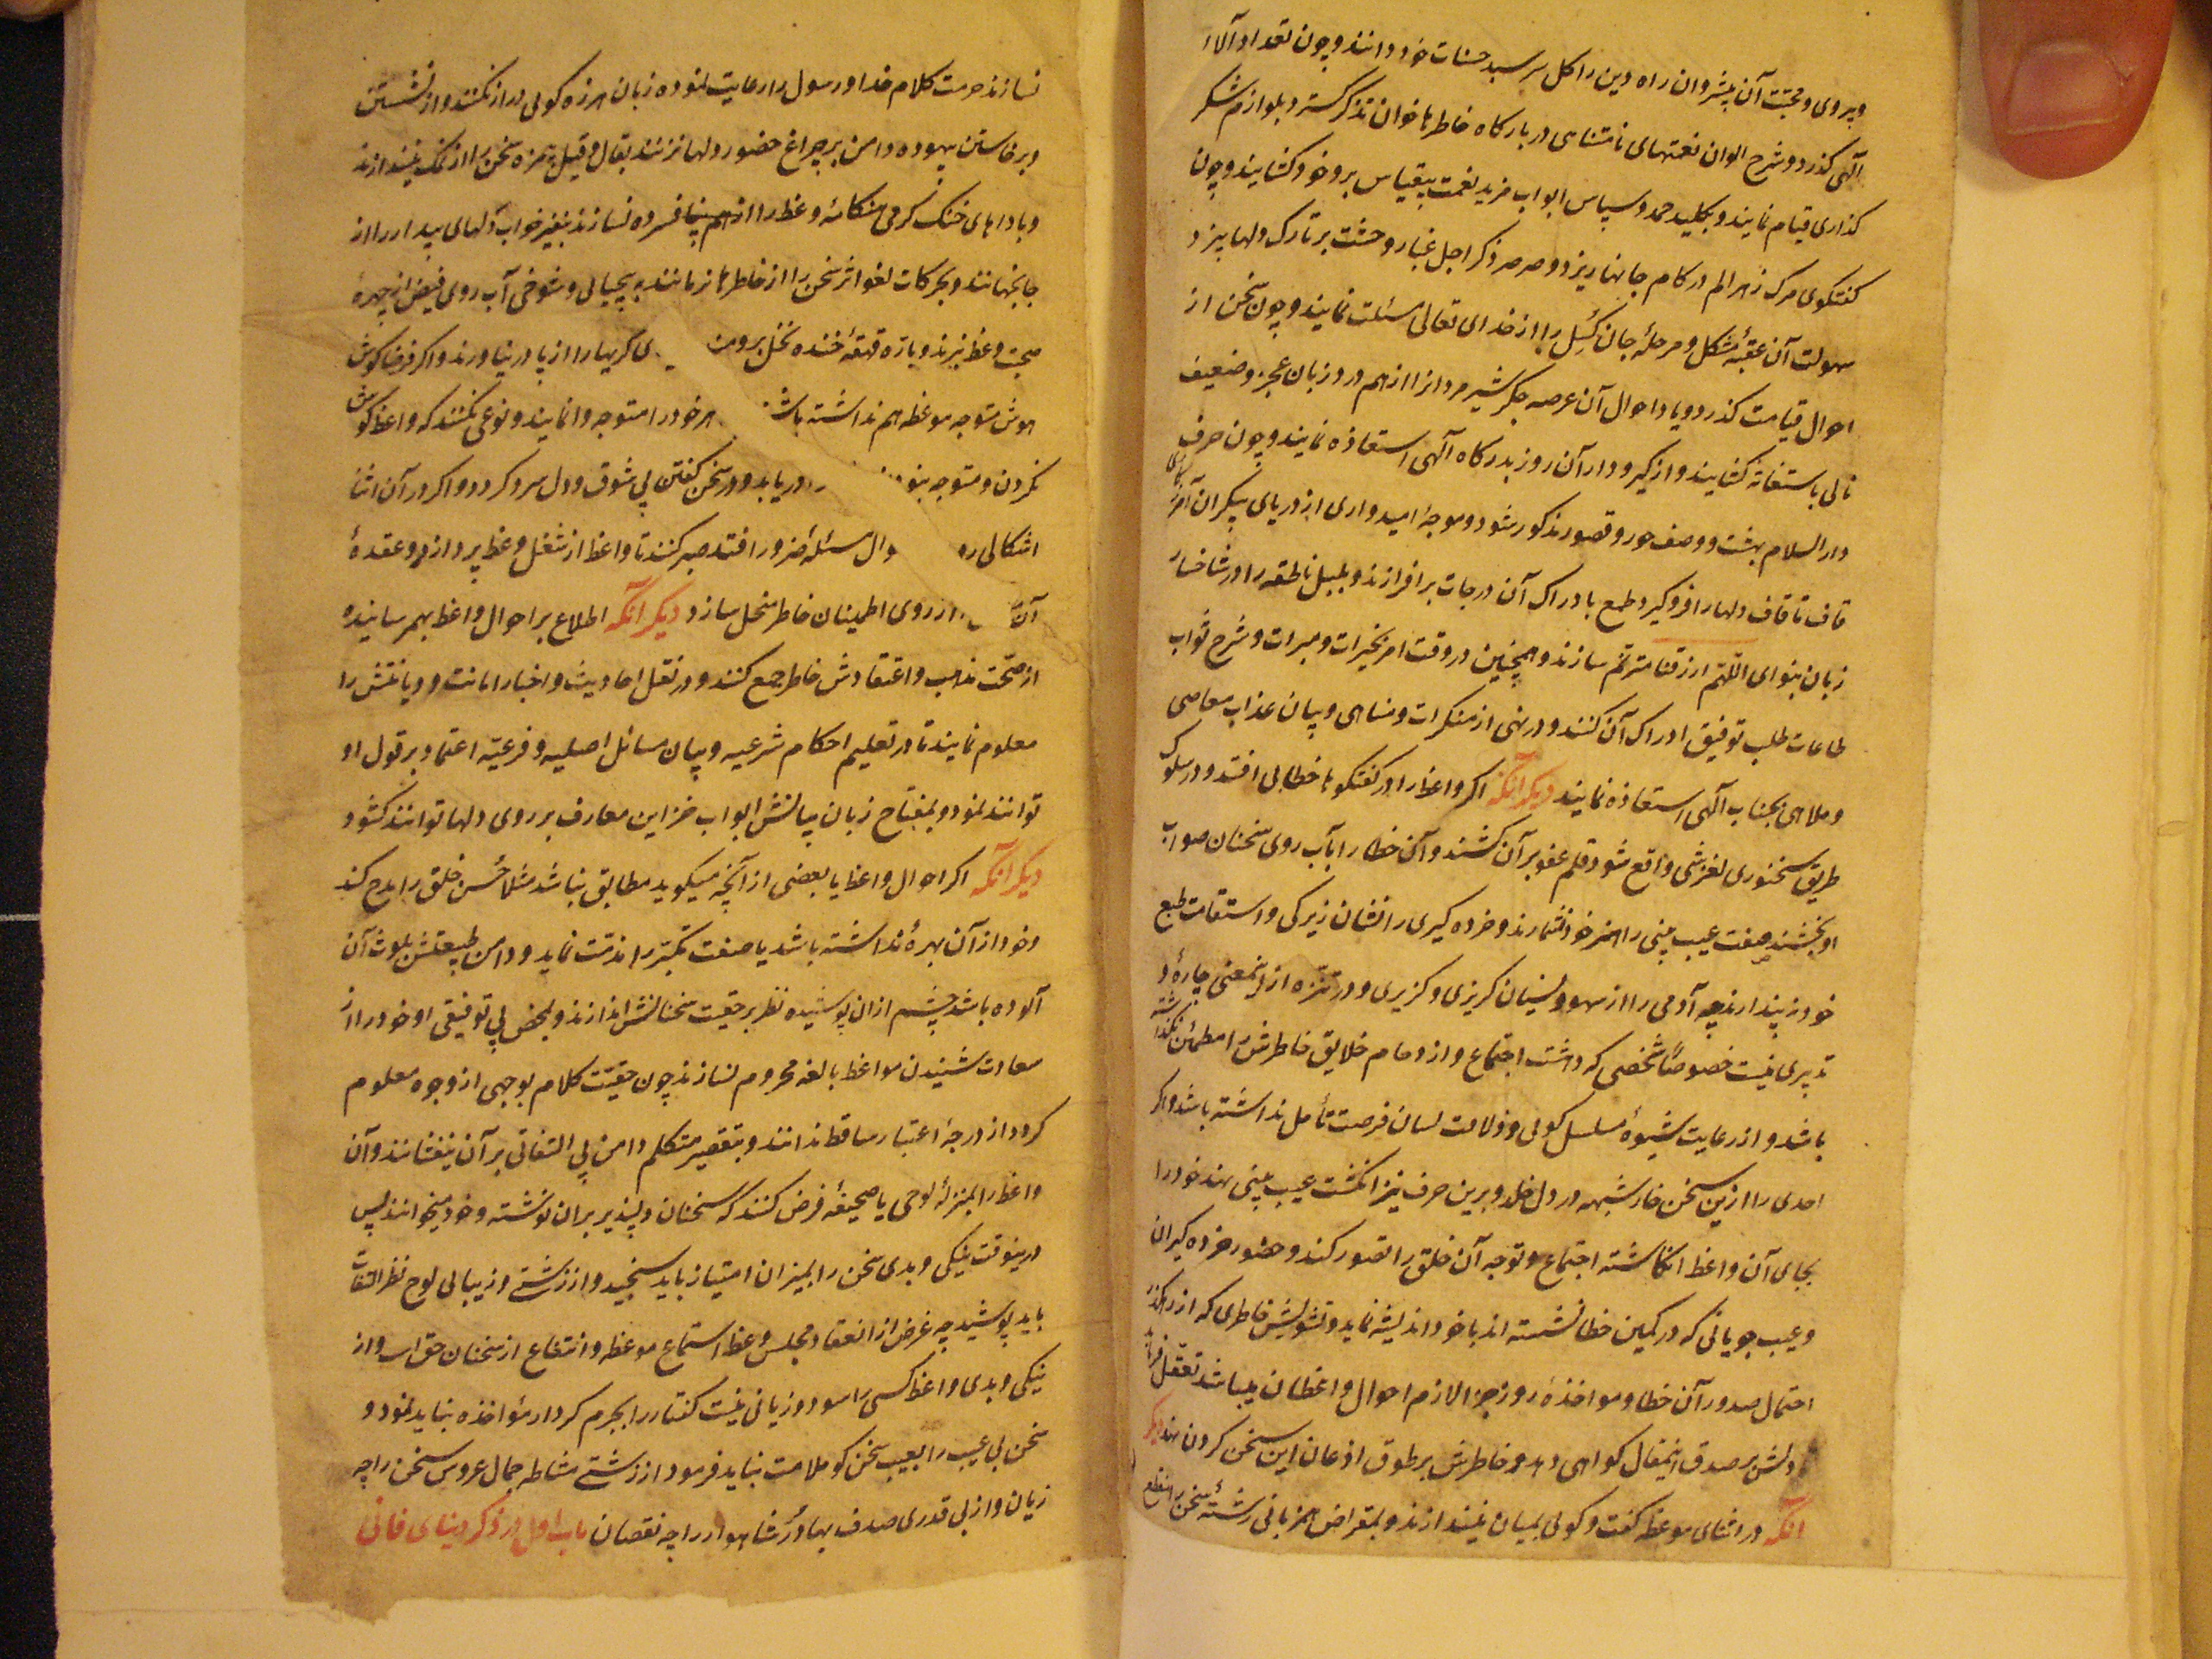 وپروی ومحبت آن پیشروان راه دین را کل سرسبد حسنات خود دانند وچون تعداد آلاء
الهی گذرد وشرح الوان نعمتهای نامتناهی در بارگاه خاطرها خوان تذکر گسترد بلوازم شکر
گذاری قیام نمایند وبکلید حمد وسپاس ابواب مزید نعمت بیقیاس بروخود گشایند وچون
گفتگوی مرگ زهر الم در کام جانها ریزد وصرصر ذکر اجل غبار وحشت بر تارک دلها بیزد
سهولت آن عقبهٔ مشکل ومرحلهٔ جان گسل را از خدای تعالی مسئلت نمایند وچون سخن از
احوال قیامت گذرد ویاد احوال آن عرصه جگر شیر مردانرا از هم درد زبان عجز وضعیف
نالی باستغاثه گشایند واز گیر ودار آن روز بدرگاه الهی استعاذه نمایند وچون حرف
دار السلام بهشت ووصف حور وقصور مذکور شود وموجهٔ امیدواری از دریای بیکران
قاف تا قاف دلها را فرو گیرد طمع بادراک آن درجات برافرازند وبلبل ناطقه را در شاخسار
زبان بنوای اللهم ارزقنا مترنم سازند وهمچنین در وقت امر بخیرات ومبرات وشرح ثواب
طاعات طلب توفیق ادراک آن کنند ودر نهی از منکرات ومناهی وبیان عذاب معاصی
وملاهی بجناب الهی استعاذه نمایند دیگر آنکه اگر واعظ را در گفتگوها خطایی افتد ودر سلوک
طریق سخنوری لغزشی واقع شود قلم عفو بر آن کشند وآن خطا را بآب روی سخنان صواب
او بخشند وصفت عیب بینی را هنر خود نشمارند وخرده گیری را نشان زیرکی واستقامت طبع
خود نپندارند چه آدمی را از سهو ونسیان گریزی وگزیری ودر تنزه از اینمعنی چاره و
تدبیری نیست خصوصاً شخصی که دهشت اجتماع وازدحام خلایق خاطرش را مطمئن نگذاشته
باشد واز رعایت شیوهٔ مسلسل گویی وذلاقت لسان فرصت تأمل نداشته باشد واگر
احدی را ازین سخن خار شبهه در دل خلد وبرین حرف نیز انگشت عیب بینی نهد خود را
بجای آن واعظ انگاشته اجتماع وتوجه آن خلق را تصور کند وحضور خرده گیران
وعیب جویانی که در کمین خطا نشسته اند با خود اندیشه نماید وتشویش خاطری که از رهگذر
احتمال صدور آن خطا ومواخذهٔ روز جزا لازم احوال واعظان میباشد تعقل فرماید
دلش بر صدق اینمقال گواهی دهد وخاطرش بر طوق اذعان این سخن گردن نهد دیگر
آنکه در اثنای موعظه گفت وگویی بمیان نیندازند وبمقراض هرزبانی رشتهٔ سخن را قطع
نسازند حرمت کلام خدا ورسول را رعایت نموده زبان بهرزه گویی دراز نکنند واز نشستن
وبرخاستن بیهوده دامن بر چراغ حضور دلها نزنند بقال وقیل بیمزه سخن را از نمک نیندازند
وبادهای خنک گرمی هنگامهٔ وعظ را از هم نپاشند وافسرده نسازند بغیر خواب دلهای بیدار را از
جا نجهانند وبحرکات لغو اثر سخن را از خاطرها نرمانند به بیحیایی وشوخی آب روی فیض از چهرهٔ
صحبت وعظ نبرند وباره قهقههٔ خنده نخل برومند ی گریها را از پا در نیاورند واگر فرضا گوش
هوش متوجه موعظه هم نداشته باشند هر خود را متوجه وانمایند ونوعی نکنند که واعظ گوش
نکردن ومتوجه نبودن را دریابد ودر سخن گفتن بی شوق ودل سرد گردد واگر در آن اثنا
اشکالی رو وال مسئله ضرور افتد صبر کنند تا واعظ از شغل وعظ پردازد وعقدهٔ
آن از روی اطمینان خاطر منحل سازد دیگر آنکه اطلاع بر احوال واعظ بهمرسانیده
از صحت مذهب واعتقادش خاطر جمع کنند ودر نقل احادیث واخبار امانت ودیانتش را
معلوم نمایند تا در تعلیم احکام شرعیه وبیان مسائل اصلیه وفرعیه اعتماد بر قول او
توانند نمود وبمفتاح زبان بیانش ابواب خزاین معارف بر روی دلها توانند گشود
دیگر آنکه اگر احوال واعظ با بعضی از آنچه میگوید مطابق نباشد مثلاً حسن خلق را مدح کند
وخود از آن بهرهٔ نداشته باشد یا صفت تکبر را مذمت نماید ودامن طبیعتش بلوث آن
آلوده باشد چشم ازان پوشیده نظر بر حقیت سخنانش اندازند وبمحض بی توفیقی او خود را از
سعادت شنیدن مواعظ بالغه محروم نسازند چون حقیت کلام بوجهی از وجوه معلوم
گردد از درجهٔ اعتبار ساقط ندانند وبتقصیر متکلم دامن بی التفاتی بر آن نیفشانند وآن
واعظ را بمنزلهٔ لوحی یا صحیفهٔ فرض کنند که سخنان دلپذیر بران نوشته وخود میخوانند پس
درینوقت نیکی وبدی سخن را بمیزان امتیاز باید سنجید واز زشتی وزیبایی لوح نظر التفات
باید پوشید چه غرض از انعقاد مجلس وعظ استماع موعظه وانتفاع از سخنان حق است واز
نیکی وبدی واعظ کسی را سود وزیانی نیست گفتار را بجرم کردار مؤاخذه نباید نمود و
سخن بی عیب را بعیب سخن گو ملامت نباید فرمود از زشتی مشاطه جمال عروس سخن را چه
زیان واز بی قدری صدف بهای در شاهوار را چه نقصان باب اول در ذکر دنیای فانی